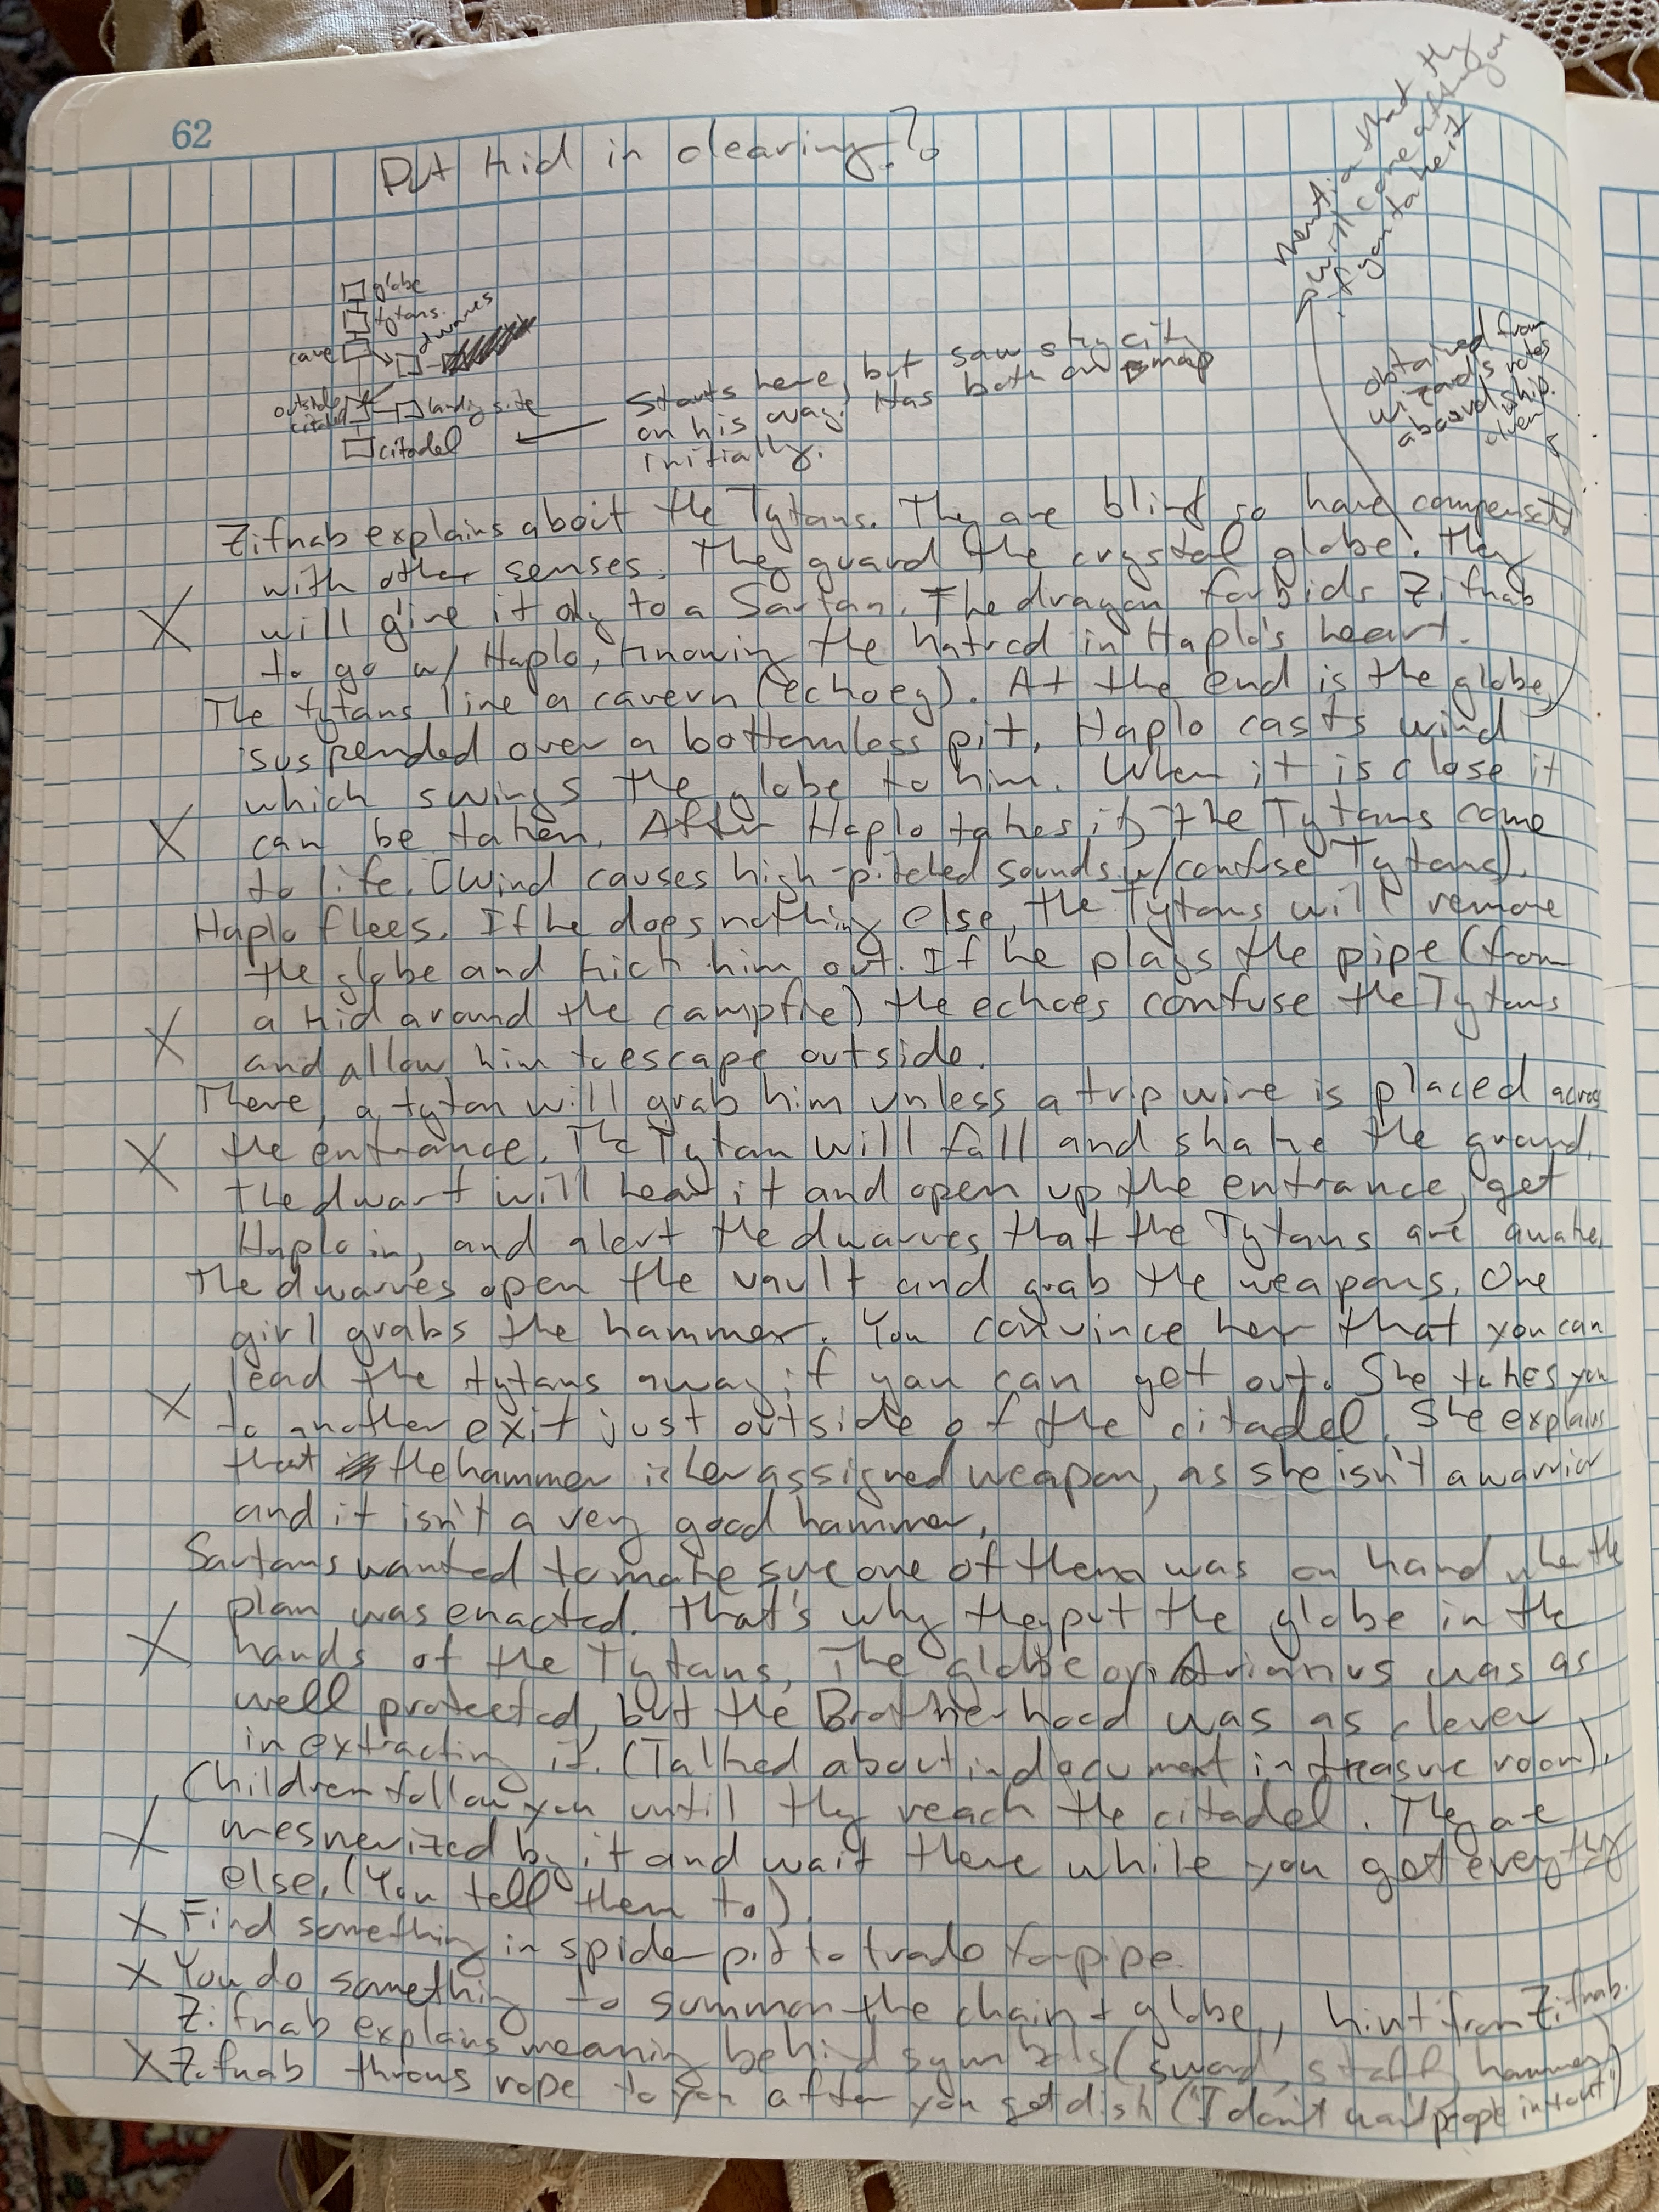 62
Put kid in clearing??
Mention that they
will come after you
if you take it
globe
tytans
dwarves
cave
outside
citadel
landing site
citadel
Starts here, but saw sky city
on his way. Has both on map
initially.
obtained from
wizard's notes
aboard ship.
Zifnab explains about the Tytans. They are blind so have compensated
with other senses. They guard the crystal globe. They
X will give it only to a Sartan. The dragon forbids Zifnab
to go w/ Haplo, knowing the hatred in Haplo's heart.
The tytans line a cavern (echoey). At the end is the globe,
suspended over a bottomless pit. Haplo casts wind
which swings the globe to him. When it is close it
X can be taken. After Haplo takes it, the Tytans come
to life. (Wind causes high-pitched sounds w/confuse Tytans).
Haplo flees. If he does nothing else, the Tytans will remove
the globe and kick him out. If he plays the pipe (from
X a kid around the campfire) the echoes confuse the Tytans
and allow him to escape outside.
There, a tytan will grab him unless a trip wire is placed across
X the entrance. The Tytan will fall and shake the ground.
The dwarf will hear it and open up the entrance, get
Haplo in, and alert the dwarves that the Tytans are awake.
The dwarves open the vault and grab the weapons. One
girl grabs the hammer. You convince her that you can
lead the tytans away if you can get out. She takes you
X to another exit just outside of the citadel. She explains
that the hammer is her assigned weapon, as she isn't a warrior
and it isn't a very good hammer.
Sartans wanted to make sure one of them was on hand when the
plan was enacted. That's why they put the globe in the
X hands of the Tytans. The globe on Arianus was as
well protected, but the Brotherhood was as clever
in extracting it. (Talked about in document in treasure room).
Children follow you until they reach the citadel. They are
X mesmerized by it and wait there while you get everything
else. (You tell them to).
X Find something in spider pit to trade for pipe.
X You do something to summon the chain + globe, hint from Zifnab.
Zifnab explains meaning behind symbols (sword, staff, hammer)
X Zifnab throws rope to you after you get dish ("I don't want people in tout")